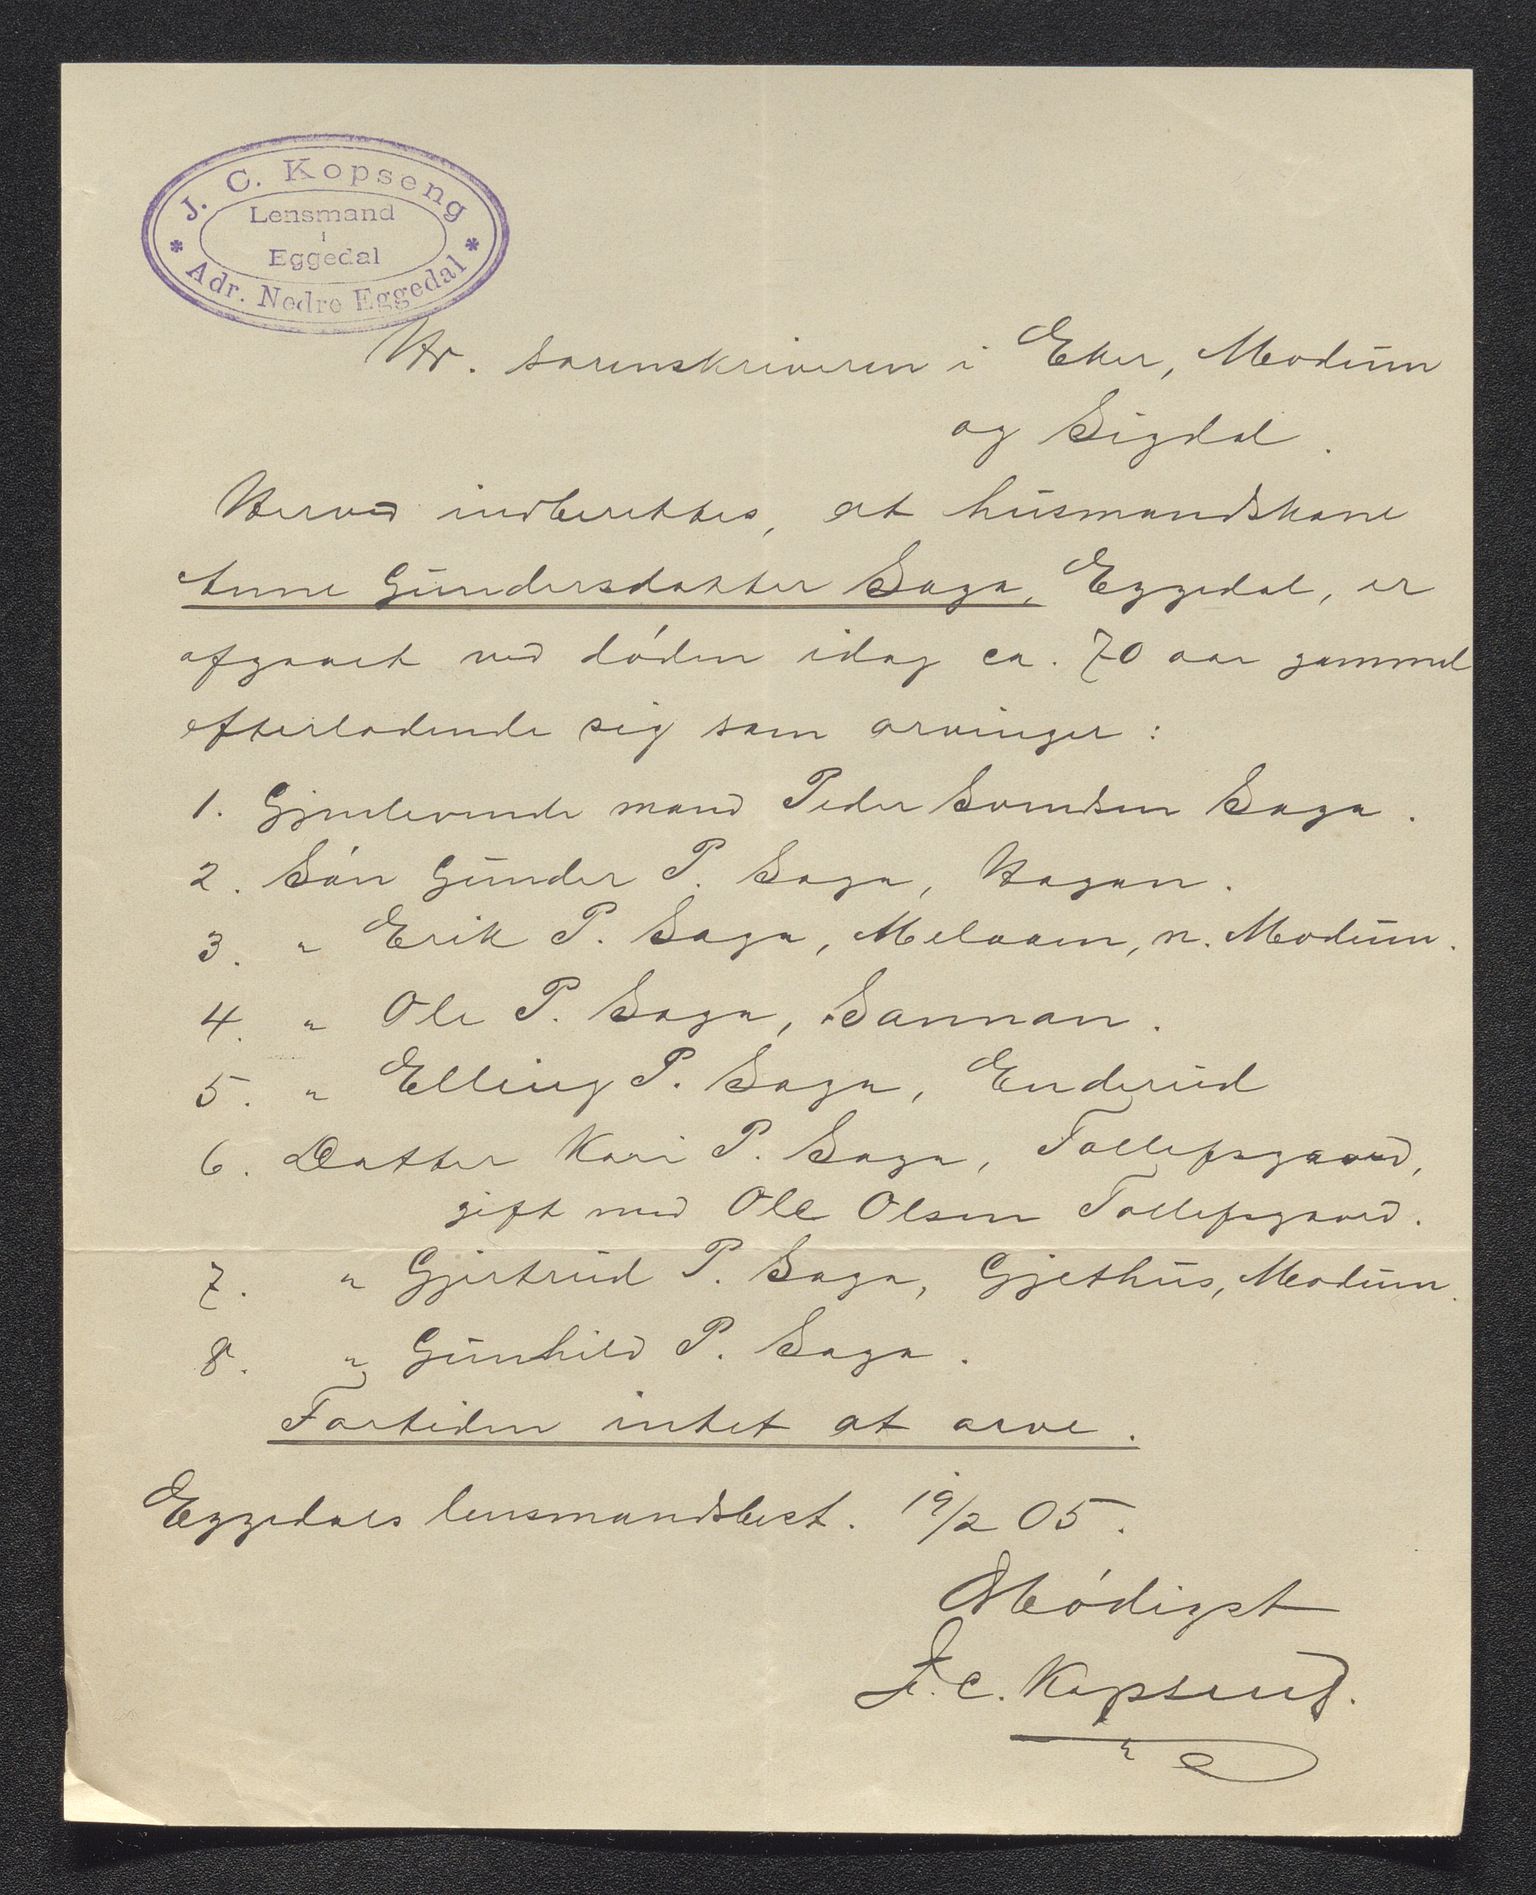 J. C. Kopseng
Lensmand
i
Eggedal
* Adr. Nedre Eggedal *
Hr. sorenskriveren i Eker, Modum
og Sigdal.
Herved indberettes, at husmandskone
Anne Gundersdatter Saga, Eggedal, er
afgaaet ved døden idag ca. 70 aar gammel
efterladende sig som arvinger:
1. Gjenlevende mand Peder Svendsen Saga.
2. Søn Gunder P. Saga, Hagan.
3. " Erik P. Saga, Melaaen, n. Modum.
4. " Ole P. Saga, Sannan.
5. " Elling P. Saga, Enderud
6. Datter Kari P. Saga, Tollefsgaard,
gift med Ole Olsen Tollefsgaard.
7. " Gjertrud P. Saga, Gjethus, Modum.
8. " Gunhild P. Saga.
Fortiden intet at arve.
Eggedals lensmandsbest. 19/2 05.
Ærbødigst
J. C. Kopseng.